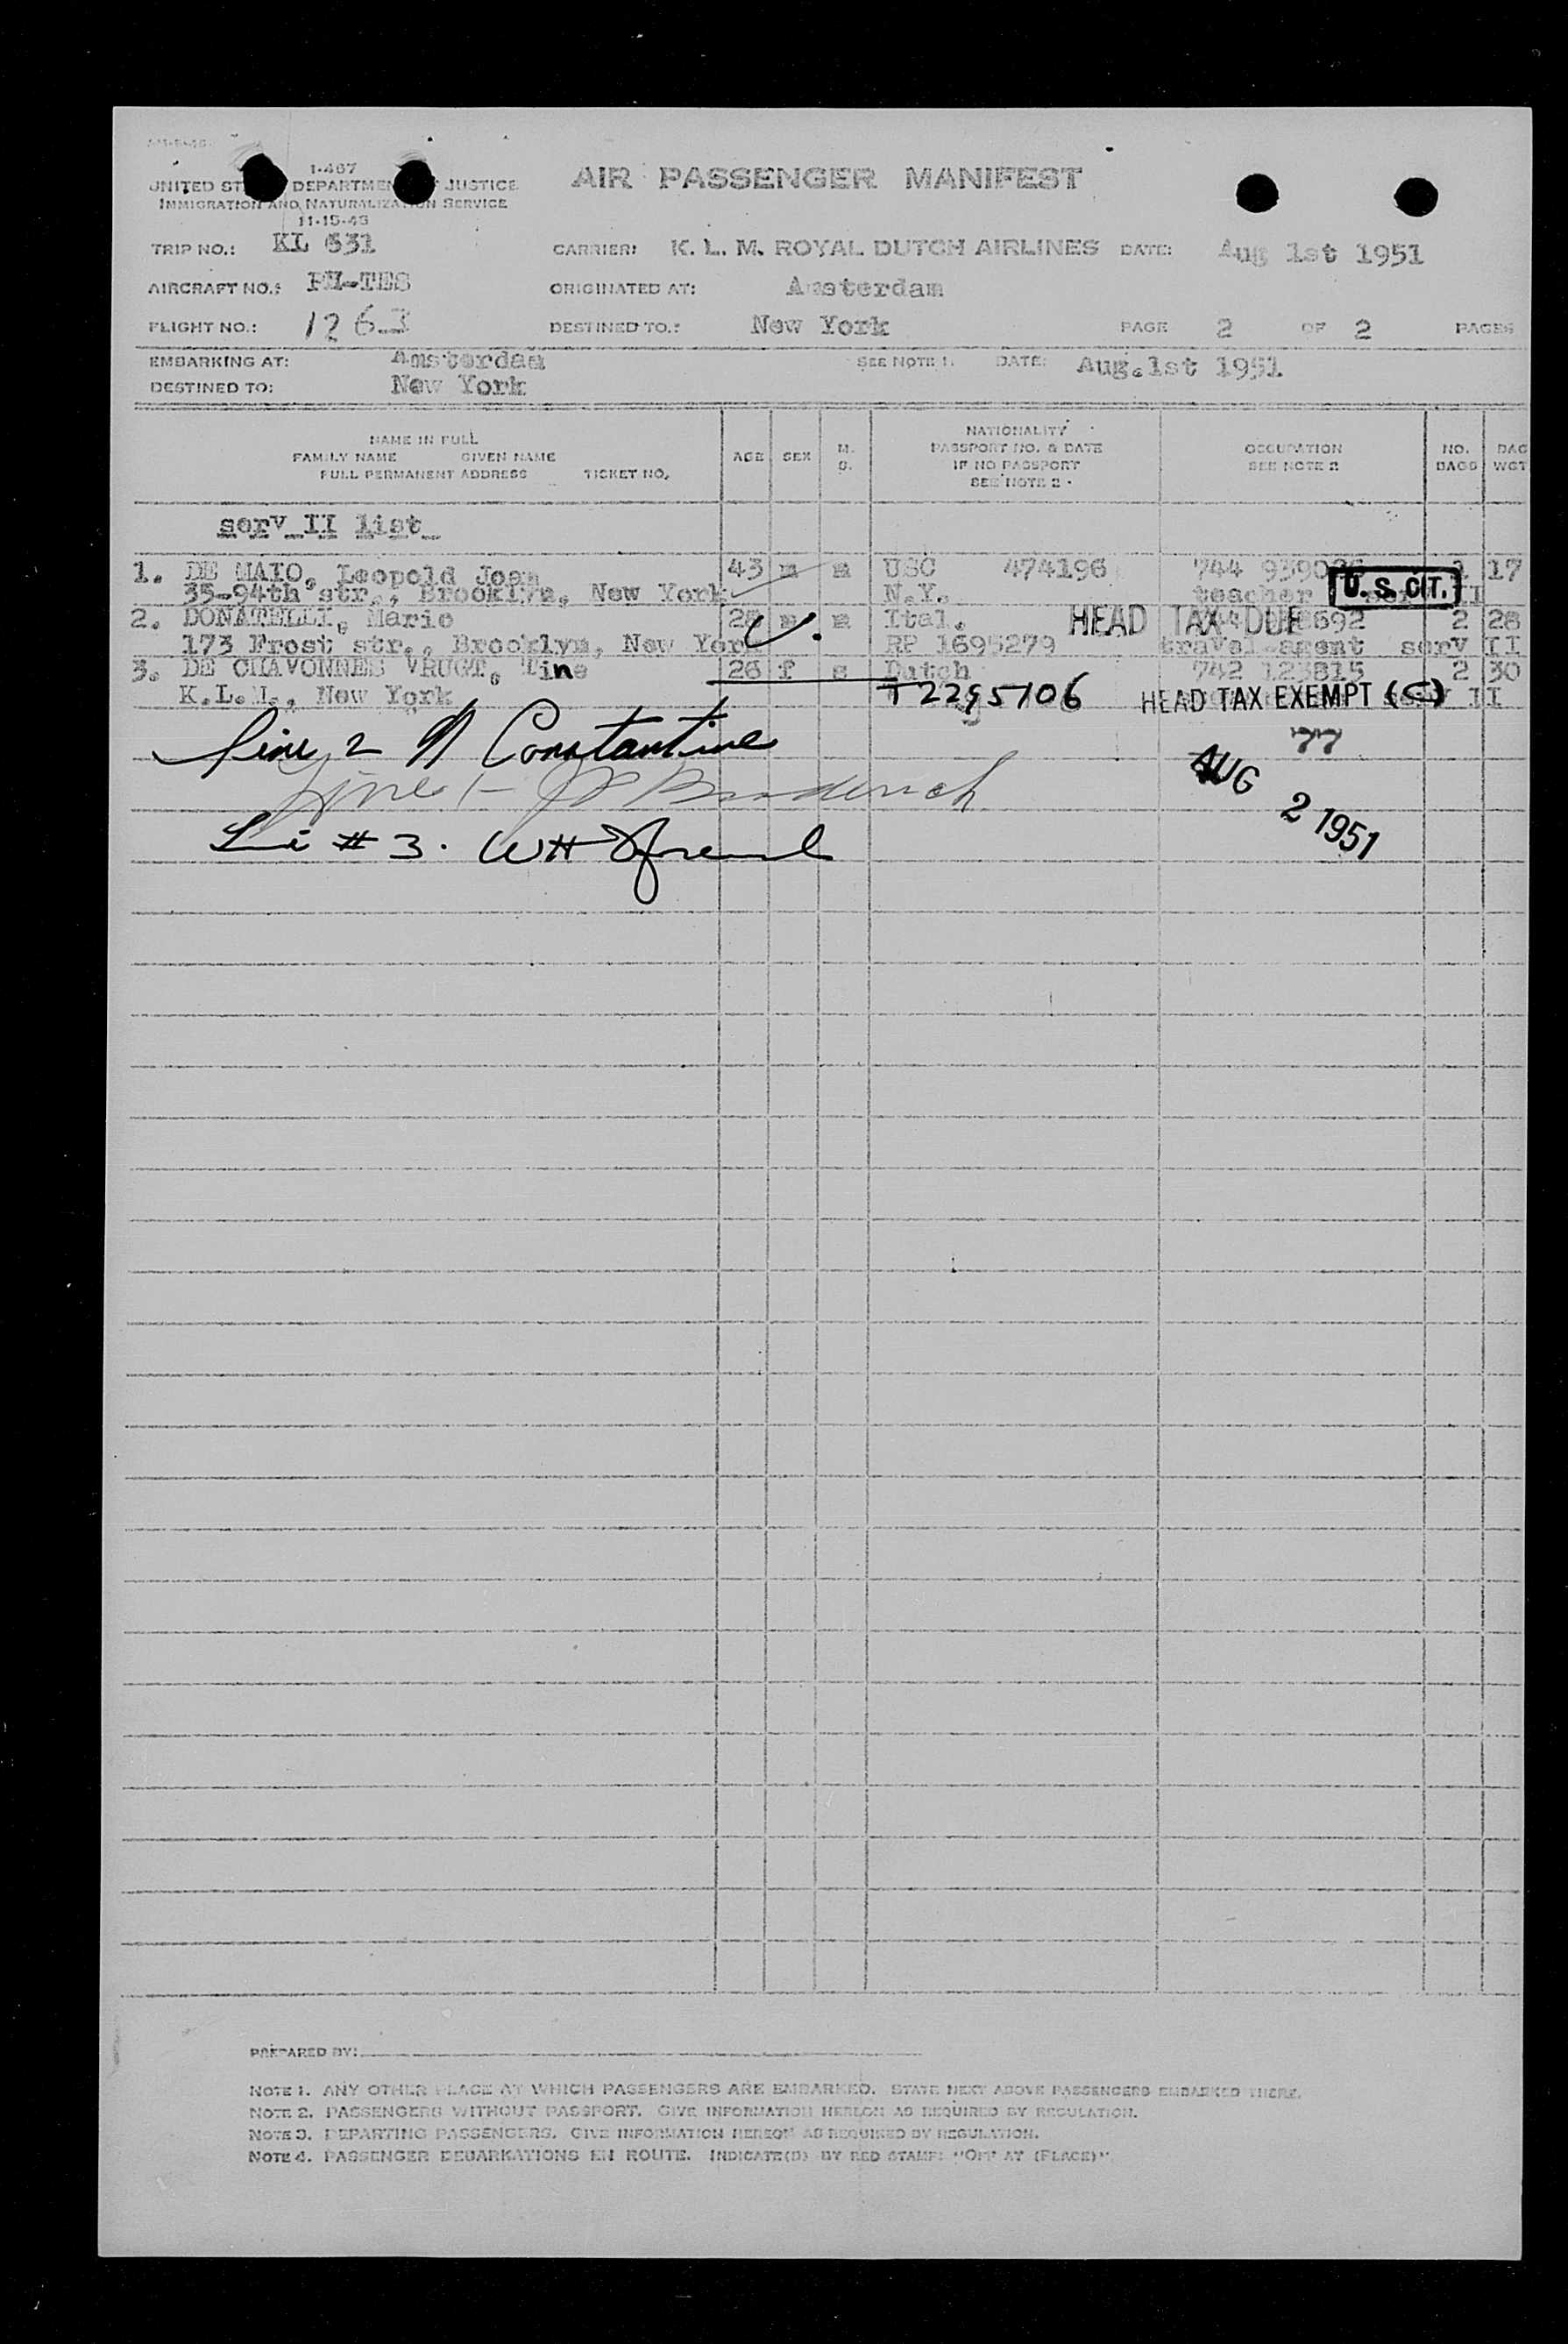 I-467
UNITED ST DEPARTMEN JUSTICE
IMMIGRATION AND NATURALIZATION SERVICE
11-15-43
AIR PASSENGER MANIFEST
TRIP NO.: KL 631 CARRIER: K. L. M. ROYAL DUTCH AIRLINES DATE: Aug 1st 1951
AIRCRAFT NO.: PH-TES ORIGINATED AT: Amsterdam
FLIGHT NO.: 1263 DESTINED TO.: New York PAGE 2 OF 2 PAGES
EMBARKING AT: Amsterdam SEE NOTE 1. DATE: Aug.1st 1951
DESTINED TO: New York
NAME IN FULL
FAMILY NAME GIVEN NAME
FULL PERMANENT ADDRESS TICKET NO.
AGE SEX M. S.
NATIONALITY
PASSPORT NO. & DATE
IF NO PASSPORT
SEE NOTE 2
OCCUPATION
SEE NOTE 2
NO. BAGS
BAG WGT
serv II list
1. DE MAIO, Leopold Joan 43 m m USC 474196 744 17
35-94th str., Brooklyn, New York N.Y. teacher U. S. CIT.
2. DONATELLI, Mario 28 m m Ital. HEAD TAX DUE 692 2 28
173 Frost str., Brooklyn, New York RP 1695279 travel-agent serv II
3. DE CHAVONNES VRUGT, Tine 26 f s Dutch 742 123815 2 30
K.L.M., New York T2295106 HEAD TAX EXEMPT (G) II
line 2 N Constantine
77
line 1- Broderick
AUG 2 1951
Li # 3. WH
PREPARED BY:
NOTE 1. ANY OTHER PLACE AT WHICH PASSENGERS ARE EMBARKED. STATE NEXT ABOVE PASSENGERS EMBARKED THERE.
NOTE 2. PASSENGERS WITHOUT PASSPORT. GIVE INFORMATION HEREON AS REQUIRED BY REGULATION.
NOTE 3. DEPARTING PASSENGERS. GIVE INFORMATION HEREON AS REQUIRED BY REGULATION.
NOTE 4. PASSENGER DEBARKATIONS EN ROUTE. INDICATE(D) BY RED STAMP: "OFF AT (PLACE)".